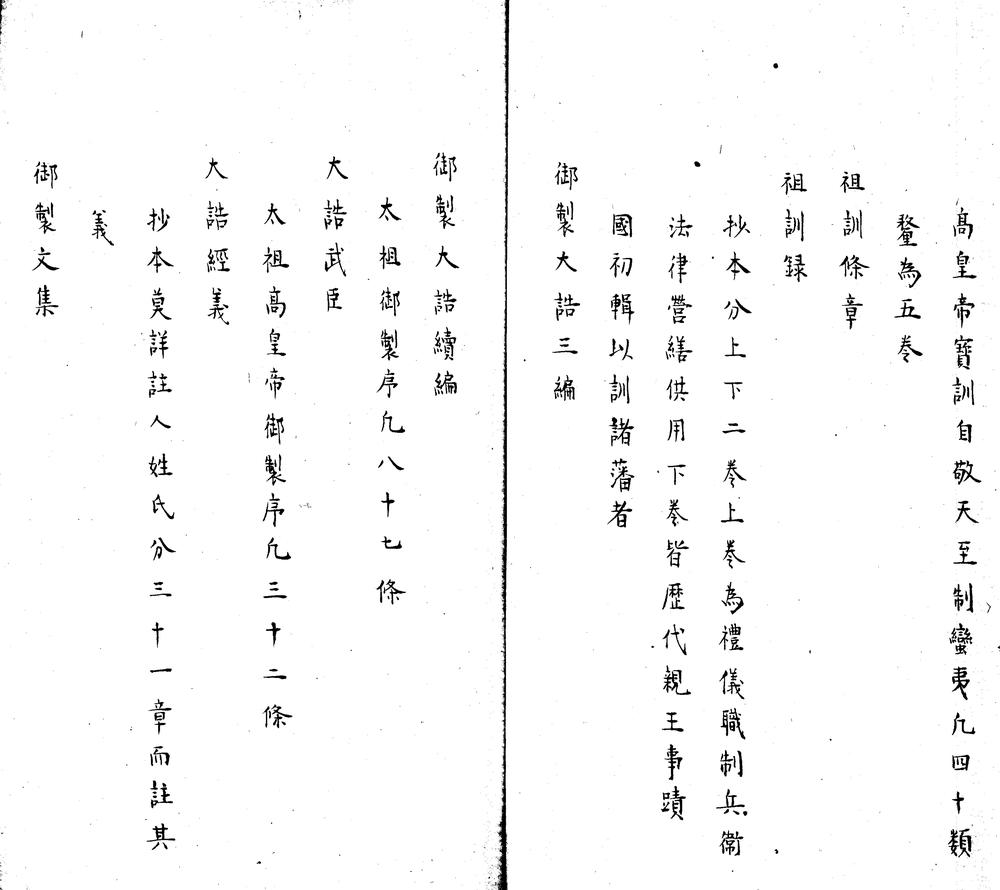 高皇帝寶訓自敬天至制蠻夷凢四十類
釐為五卷
祖訓條章
祖訓録
抄本分上下二卷上卷為禮儀職制兵衛
法律營繕供用下卷皆歷代親王事蹟
國初輯以訓諸藩者
御製大誥三編
御製大誥續編
太祖御製序凢八十七條
大誥武臣
太祖高皇帝御製序凢三十二條
大誥經義
抄本莫詳註人姓氏分三十一章而註其
義
御製文集